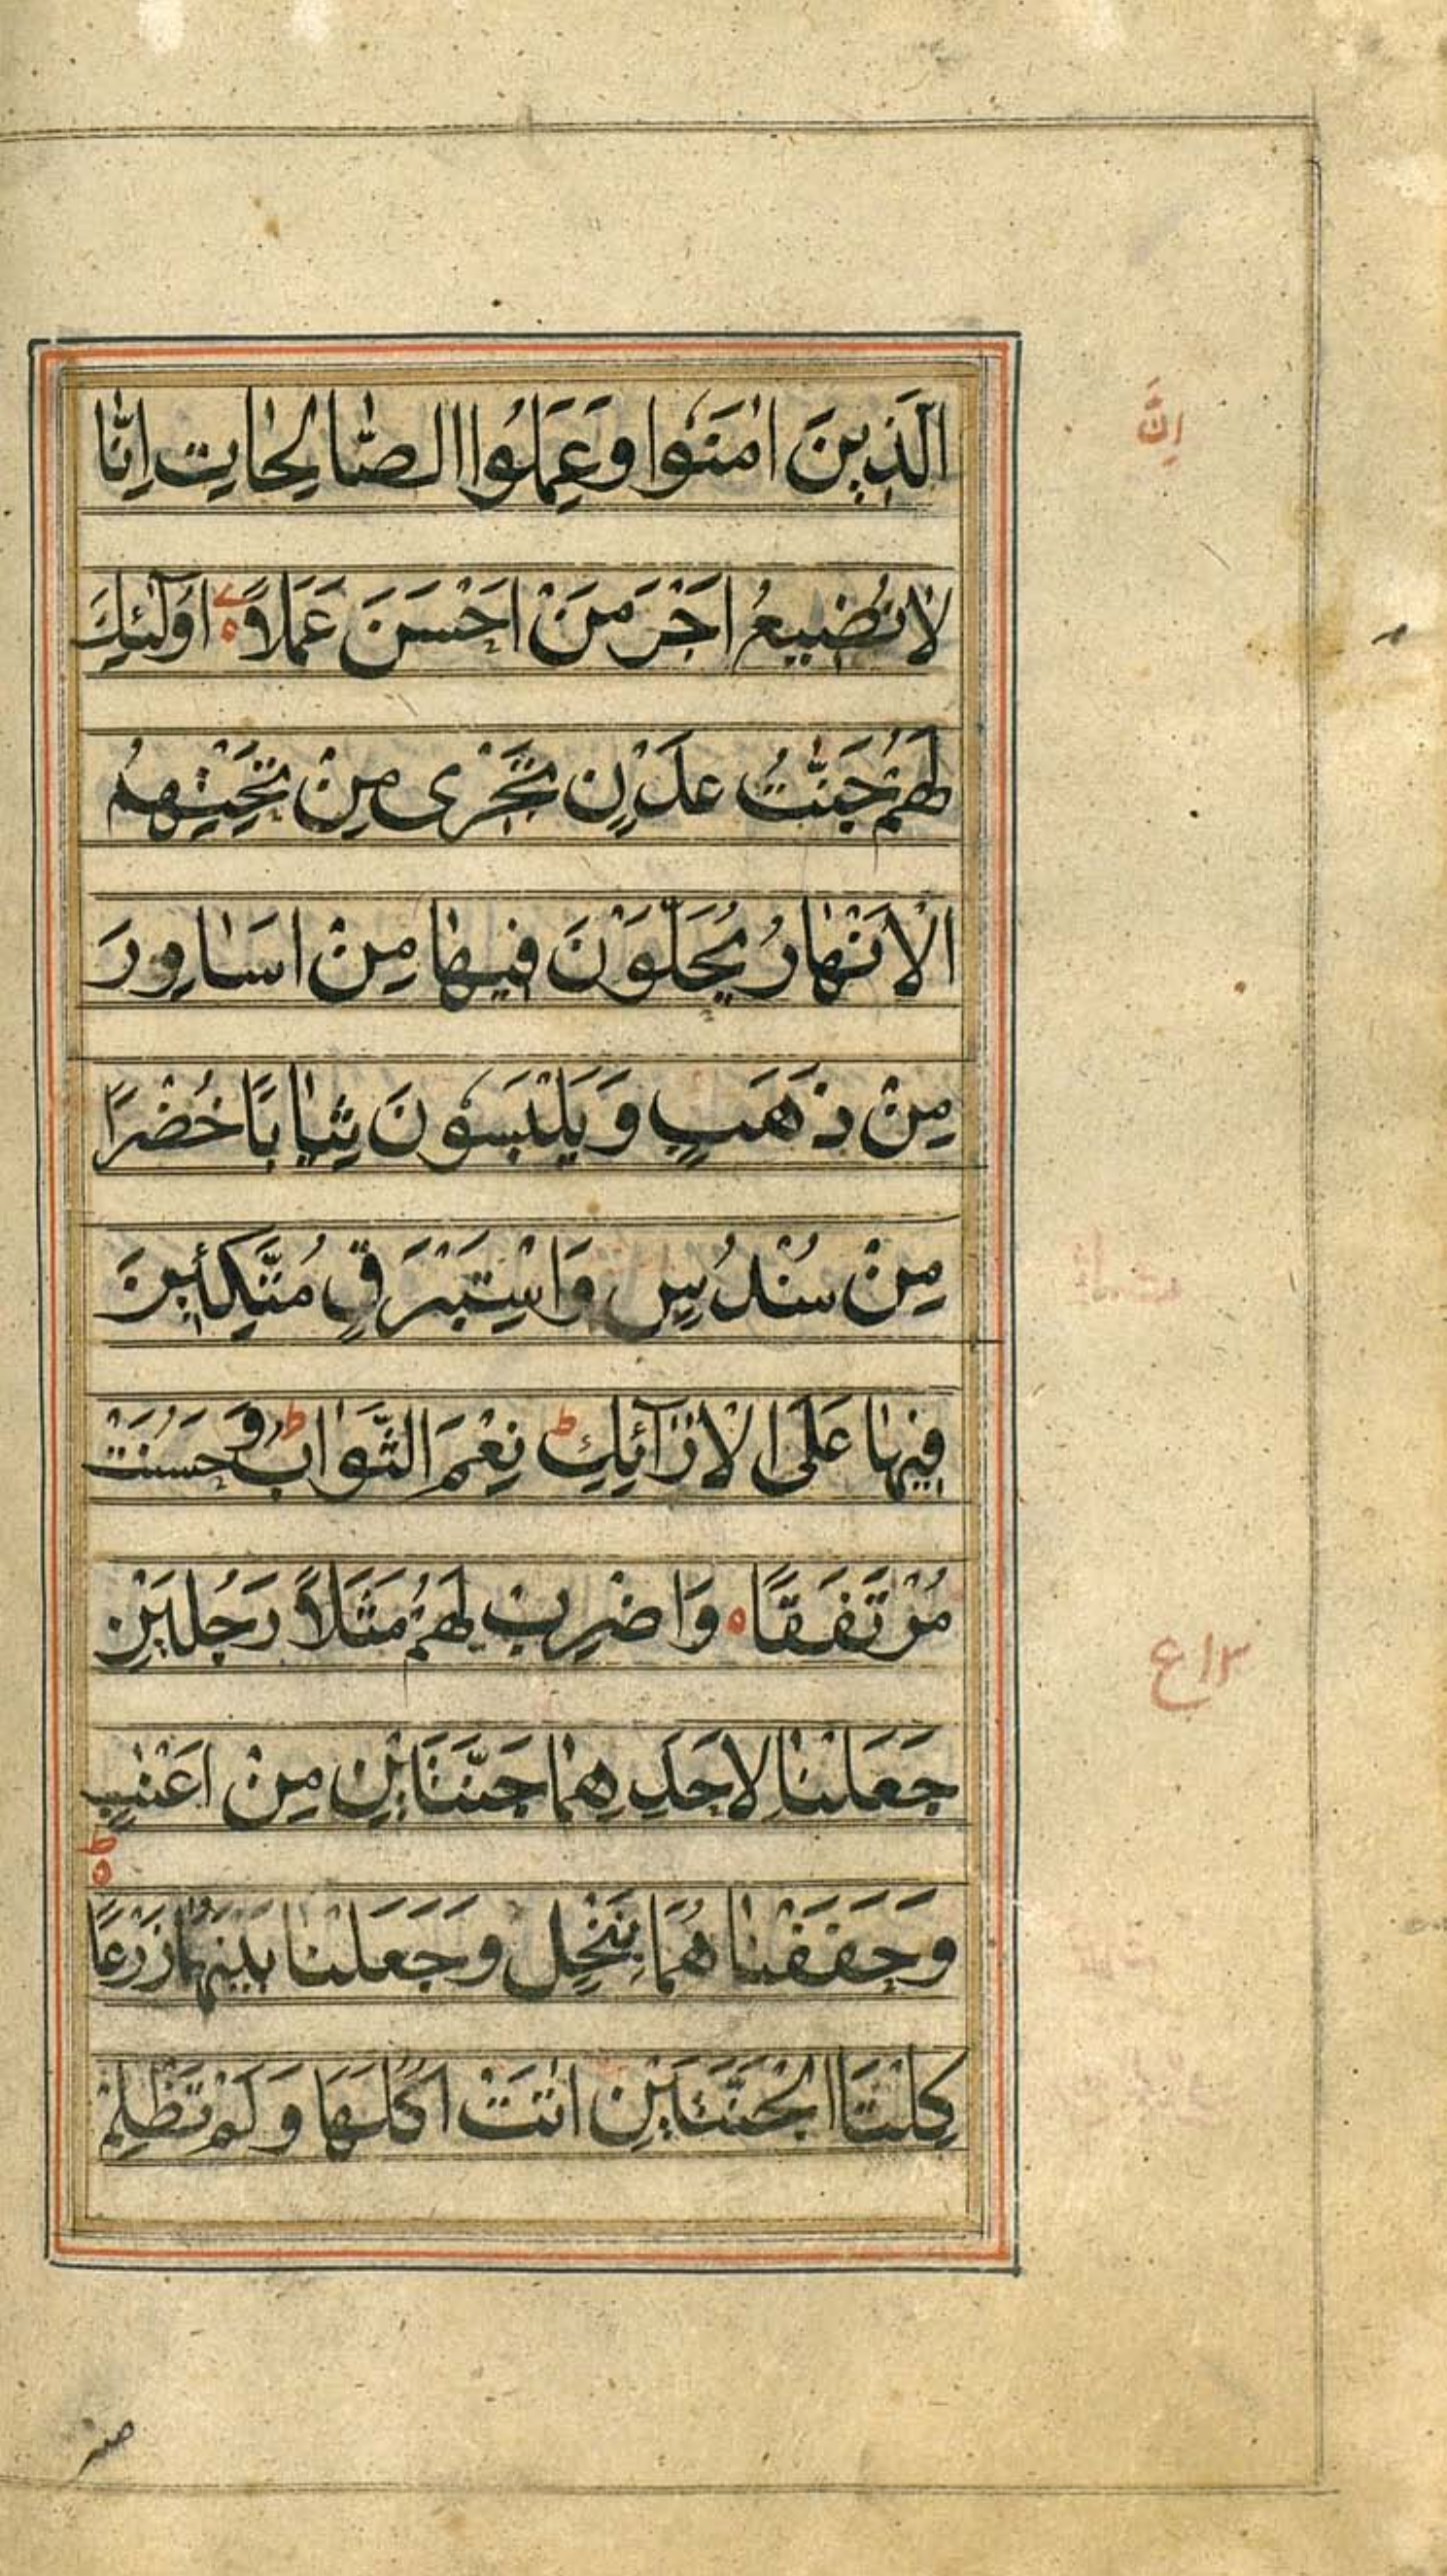 اِنَّ
الَّذِينَ اٰمَنُوا وَعَمِلُوا الصّٰالِحٰاتِ اِنّٰا
لاٰ نُضِيعُ اَجْرَ مَنْ اَحْسَنَ عَمَلاً ۚ اُولٰٓئِكَ
لَهُمْ جَنّٰتُ عَدْنٍ تَجْرٖى مِنْ تَحْتِهِمُ
الْاَنْهٰارُ يُحَلَّوْنَ فٖيهٰا مِنْ اَسٰاوِرَ
مِنْ ذَهَبٍ وَيَلْبَسُونَ ثِيٰابًا خُضْرًا
مِنْ سُنْدُسٍ وَاِسْتَبْرَقٍ مُتَّكِئٖينَ
فٖيهٰا عَلَى الْاَرٰٓائِكِ ط نِعْمَ الثَّوٰابُ ط وَحَسُنَتْ
مُرْتَفَقًا ه وَاضْرِبْ لَهُمْ مَثَلاً رَجُلَيْنِ
جَعَلْنٰا لِاَحَدِهِمٰا جَنَّتَيْنِ مِنْ اَعْنٰبٍ
وَحَفَفْنٰاهُمَا بِنَخْلٍ وَجَعَلْنٰا بَيْنَهُمٰا زَرْعًا ط
كِلْتَا الْجَنَّتَيْنِ اٰتَتْ اُكُلَهَا وَلَمْ تَظْلِمْ